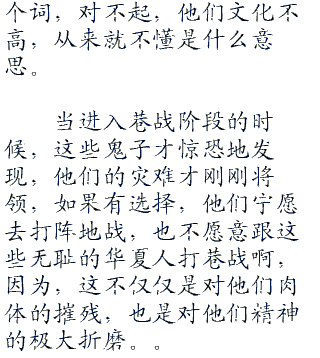 个词，对不起，他们文化不
高，从来就不懂是什么意
思。
当进入巷战阶段的时
候，这些鬼子才惊恐地发
现，他们的灾难才刚刚将
领，如果有选择，他们宁愿
去打阵地战，也不愿意跟这
些无耻的华夏人打巷战啊，
因为，这不仅仅是对他们肉
体的摧残，也是对他们精神
的极大折磨。。